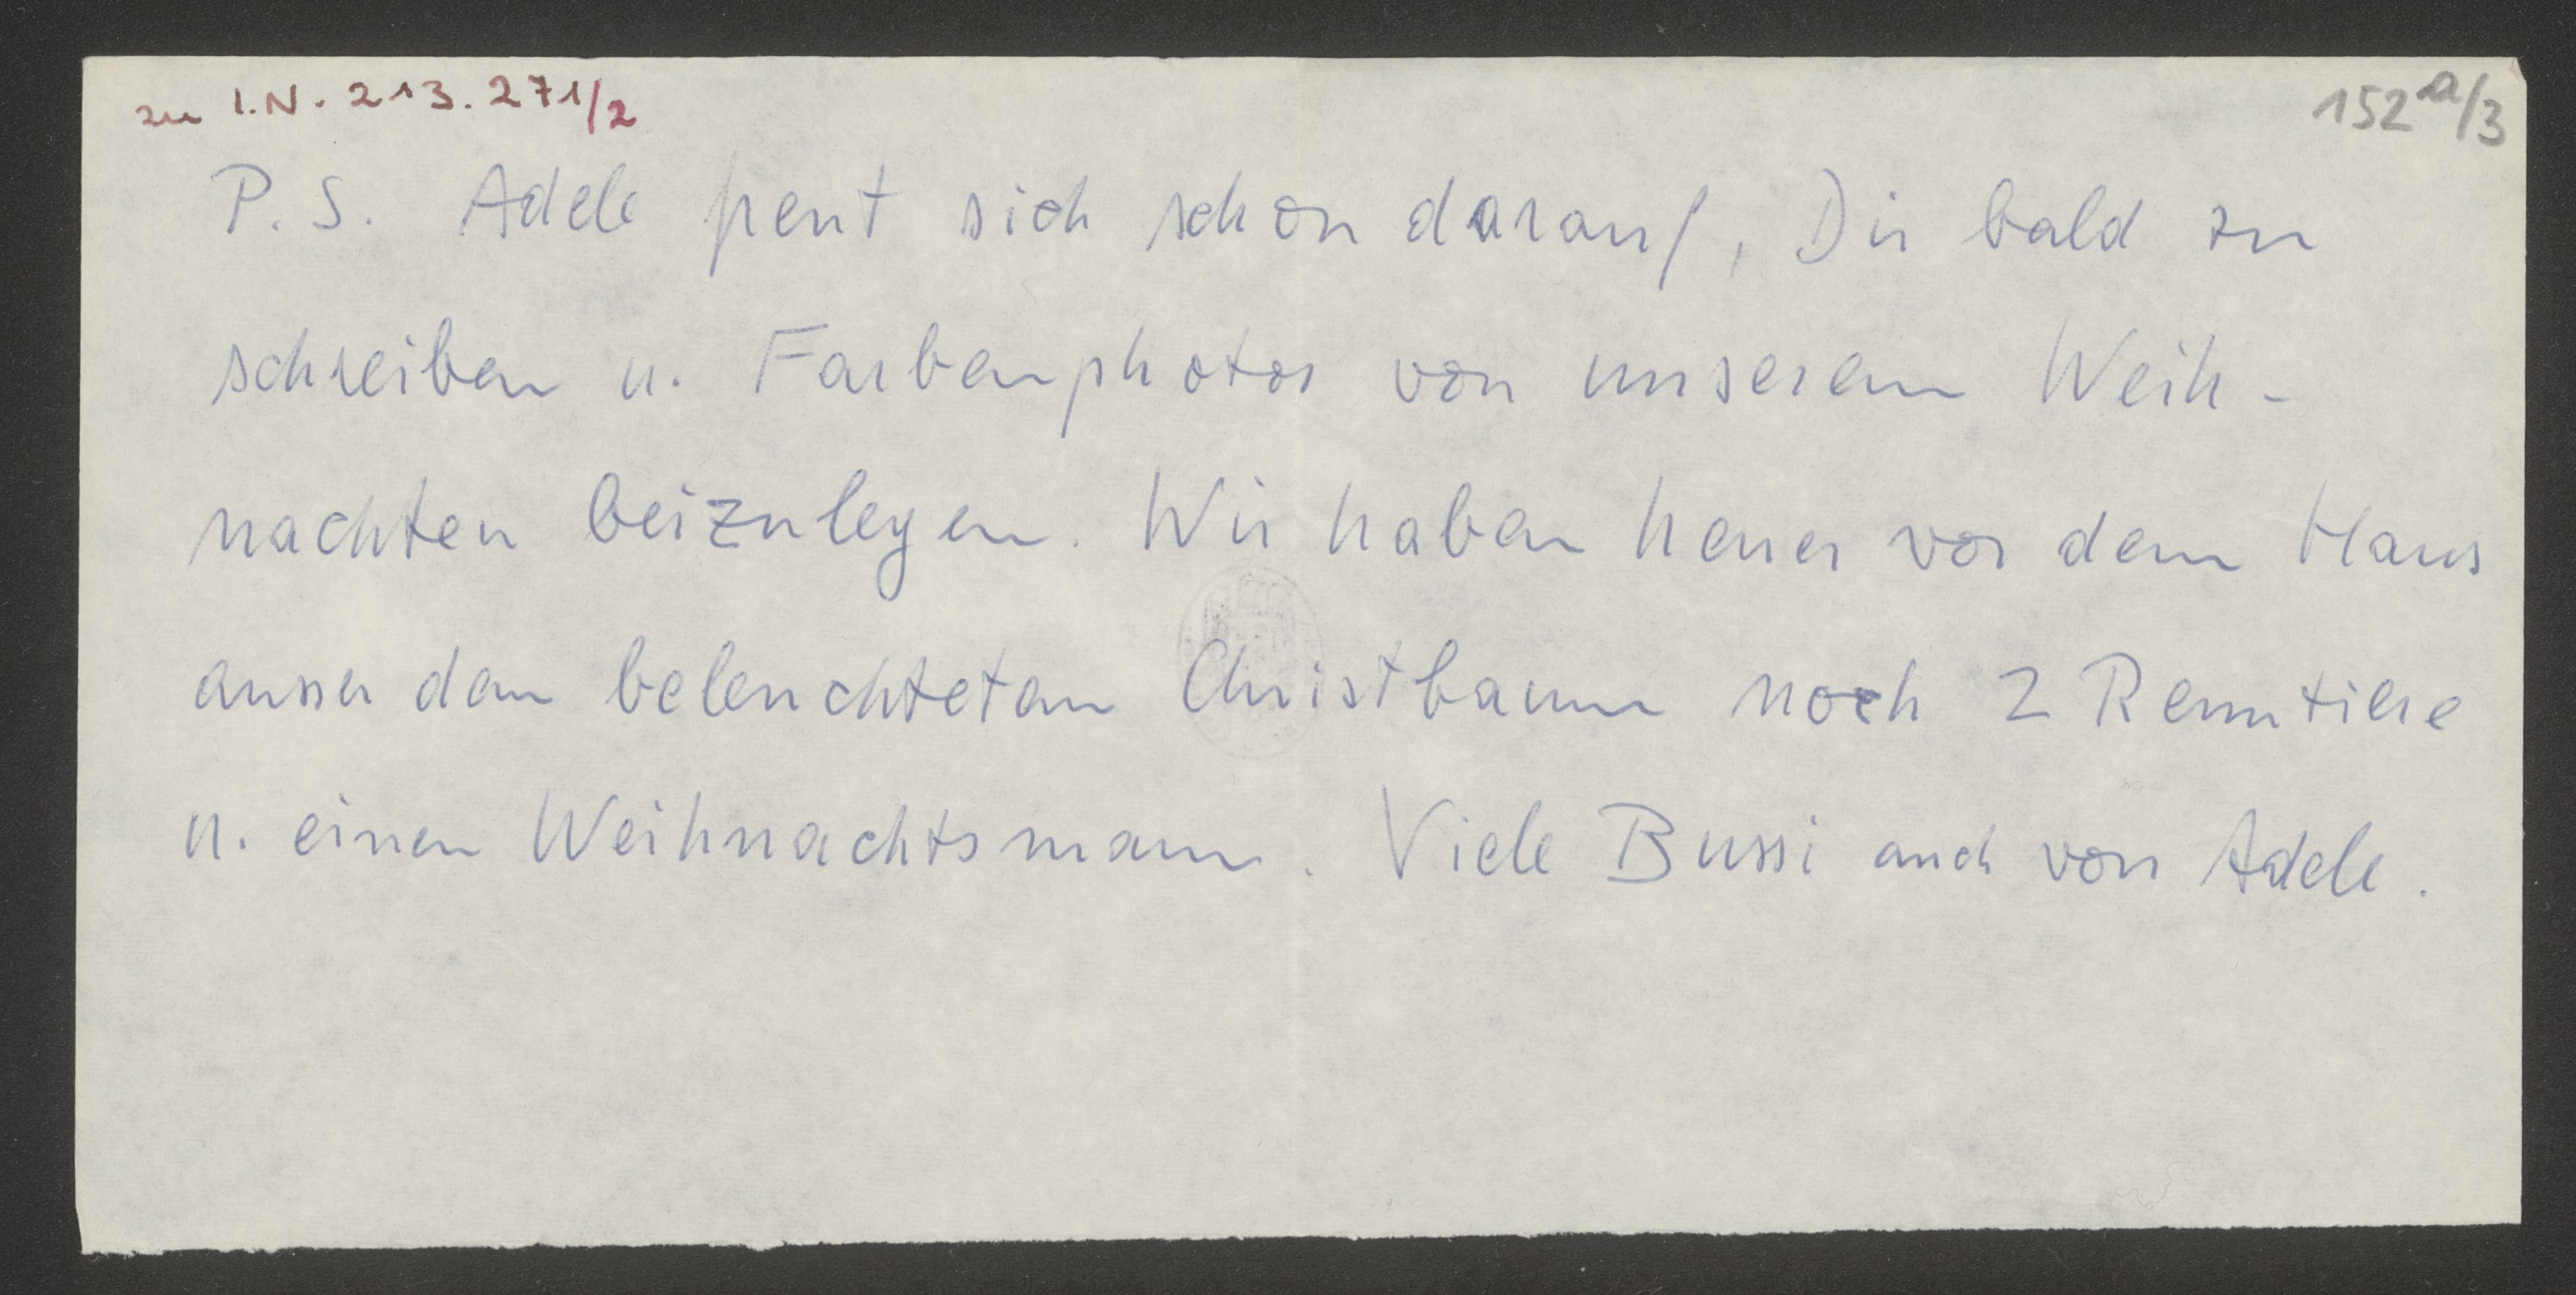 zu I.N. 213.271/2
152a/3
P.S. Adele freut sich schon darauf, Dir bald zu
schreiben u. Farbenphotos von unserem Weih-
nachten beizulegen. Wir haben heuer vor dem Haus
ausser dem beleuchteten Christbaum noch 2 Renntiere
u. einen Weihnachtsmann. Viele Bussi auch von Adele.